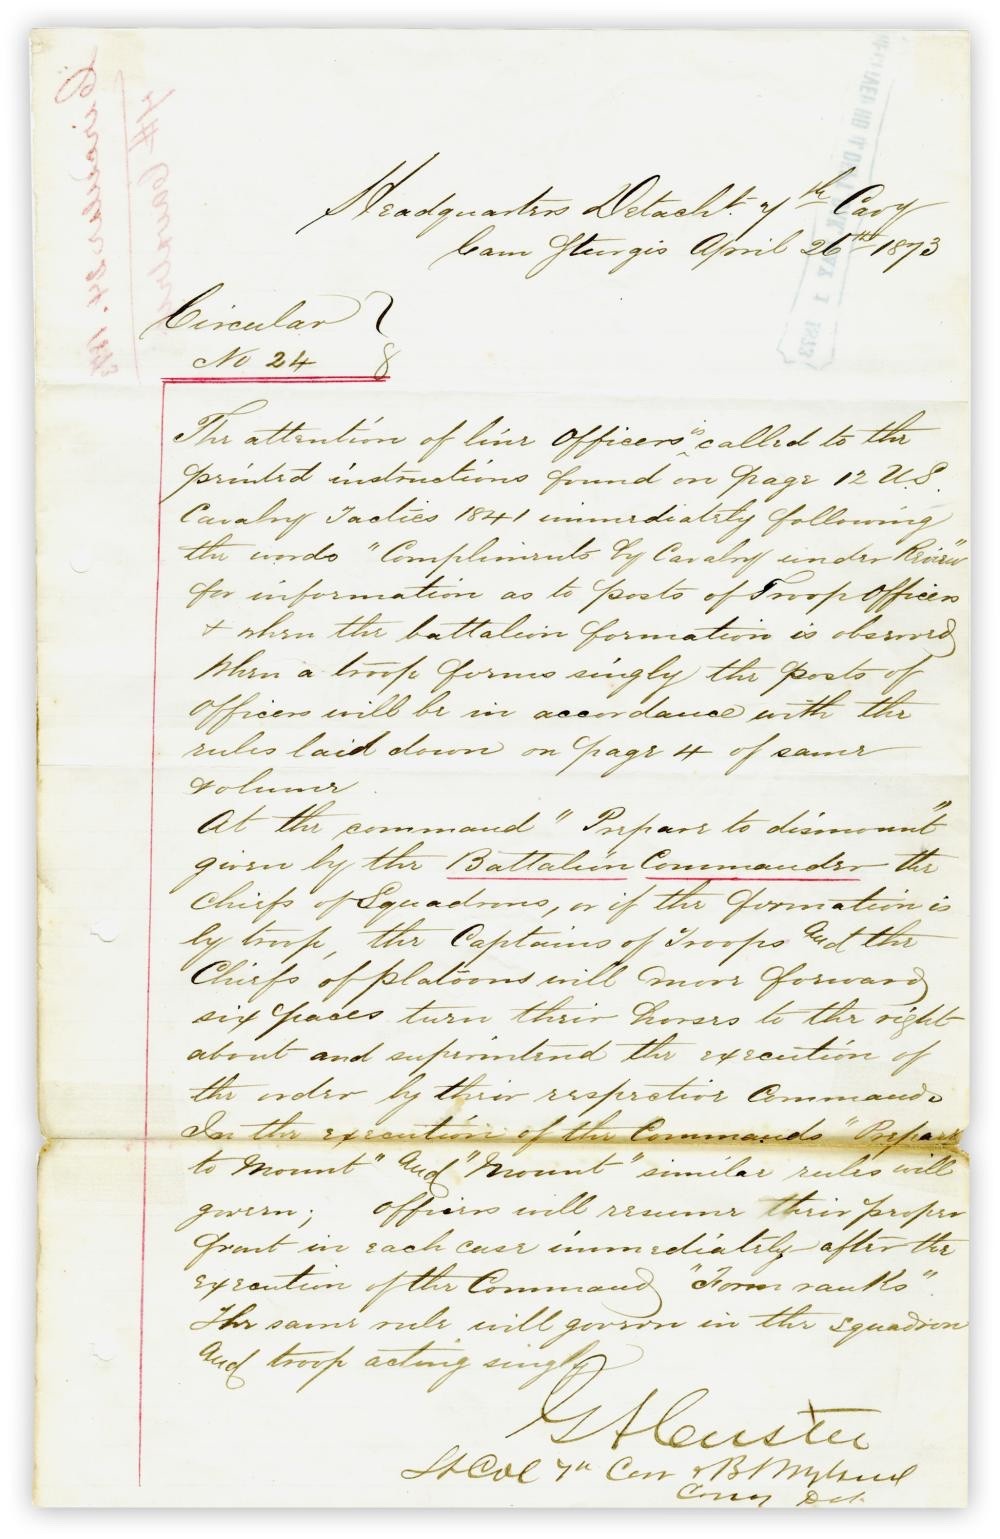 Headquarters Detacht. 7th Cavy
Cam Sturgis April 26th 1873
Circular
No 24
The attention of line Officers is called to the
printed instructions found on page 12 U.S.
Cavalry Tactics 1841 immediately following
the words "Compliments by Cavalry under Review"
for information as to posts of Troop Officers
+ when the battalion formation is observed
When a troop forms singly the posts of
Officers will be in accordance with the
rules laid down on page 4 of same
volume
At the command "Prepare to dismount"
given by the Battalion Commander the
Chiefs of Squadrons, or if the formation is
by troop, the Captains of Troops and the
Chiefs of platoons will move forward
six paces turn their horses to the right
about and superintend the execution of
the order by their respective Commands
In the execution of the Commands "Prepare
to Mount" and "Mount" similar rules will
govern; Officers will resume their proper
front in each case immediately after the
execution of the Command "Form ranks".
The same rule will govern in the squadron
and troop acting singly
G A Custer
Lt Col 7th Cav
Comg Det
Circular 24.
7th Cavalry
RECEIVED HD
MAY 1 1873